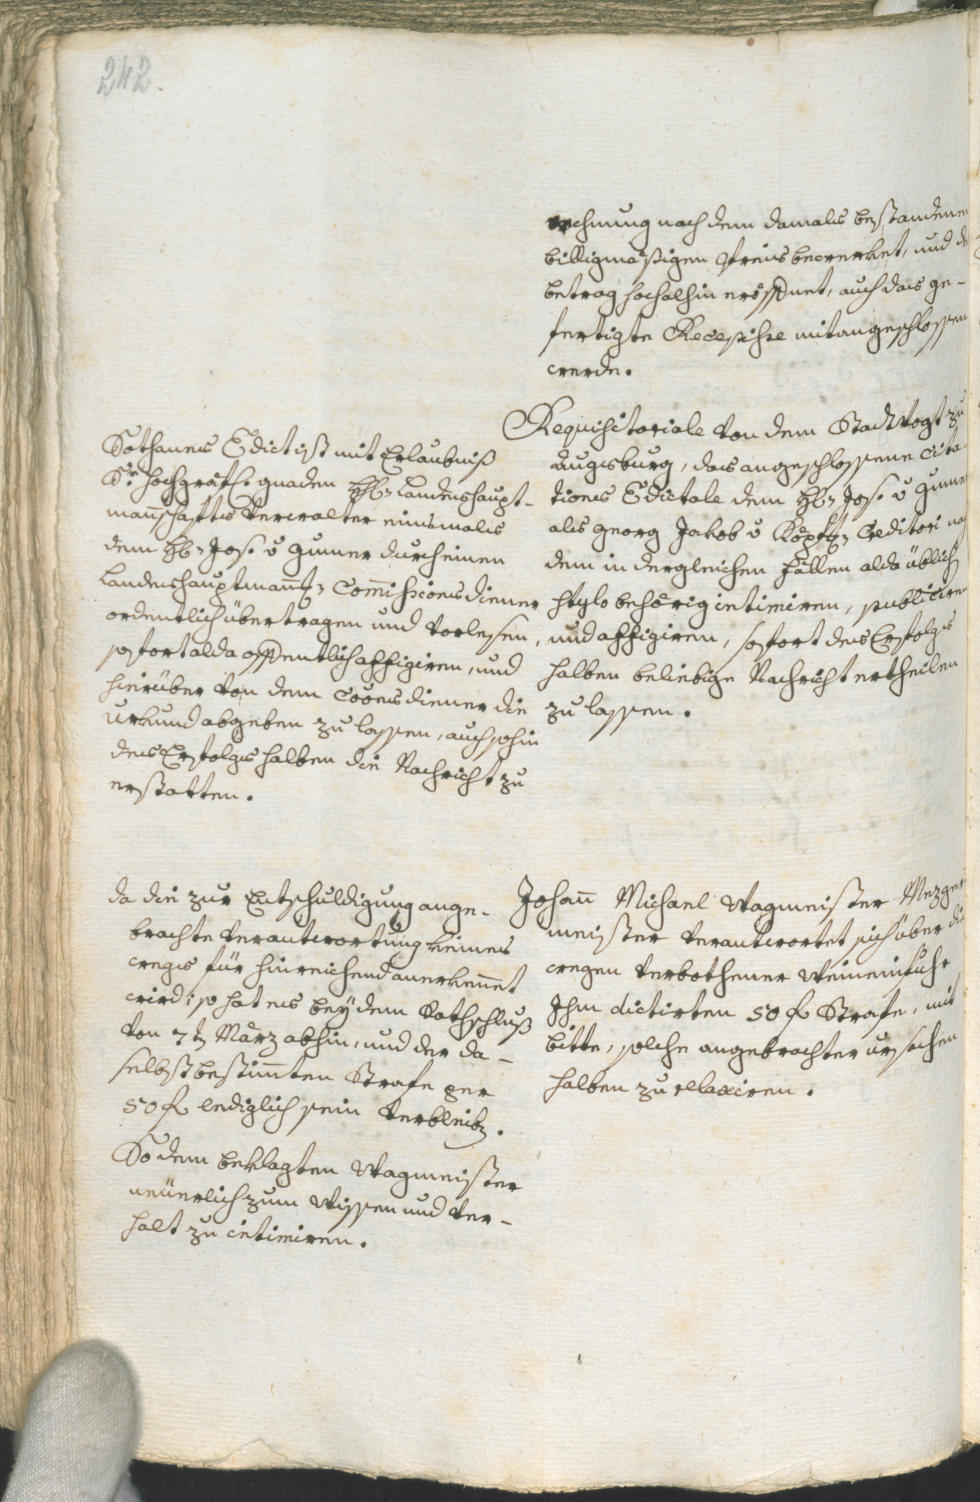 242.
rechnung nach dem damals bestandenen
billigmäßigen Preis bewerket, und d
betrag hochalhin eröffnet, auch das ge-
fertigte Recepisse mitangeschlossen
werde.
Requisitoriale von dem Stadtvogt zu
Augsburg, das angeschlossene Cita-
tions Edictale dem Hl: Jos. v
als Georg Jakob v Creditori
dem in dergleichen fällen alda üblich
stylo behörig intimiren, publiciren
und affigiren, sofort des Erfolgs
halben beliebige Nachricht ertheilen
zu lassen.
Sothanes Edict ist mit Erlaubniß
Sr hochgräfl. gnaden Hl: Landeshaupt-
mañschafts Verwalter einsmals
dem Hl: Jos. v durch einen
Landeshauptmañ: Com̃issionsdiener
ordentlich übertragen und vorlesen,
sofort alda offentlich affigiren, und
hierüber von dem Coonsdiener die
Urkund abgeben zu lassen, auch sohin
des Erfolgs halben die Nachricht zu
erstatten.
Johañ Michael Wagmeister Mezger
meister verantwortet sich über die
wegen verbothener Weineinfuhr
Ihm dictirten 50 f Strafe, mit
bitte, solche angebrachter ursachen
halben zu relaxiren.
da die zur Entschuldigung ange-
brachte Verantwortung keines
wegs für hinreichend anerkeñet
wird: so hat es bey dem Rathschluß
von 7t März abhin, und der da-
selbst bestim̃ten Strafe per
50 f lediglich sein Verbleib.
So dem beklagten Wagmeister
neüerlich zum Wissen und Ver-
halt zu intimiren.